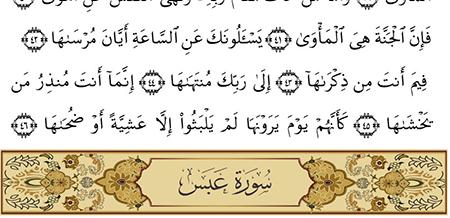 فَإِنَّ ٱلْجَنَّةَ هِىَ ٱلْمَأْوَىٰ ﴿٤١﴾ يَسْـَٔلُونَكَ عَنِ ٱلسَّاعَةِ أَيَّانَ مُرْسَىٰهَا ﴿٤٢﴾
فِيمَ أَنتَ مِن ذِكْرَىٰهَآ ﴿٤٣﴾ إِلَىٰ رَبِّكَ مُنتَهَىٰهَآ ﴿٤٤﴾ إِنَّمَآ أَنتَ مُنذِرُ مَن
يَخْشَىٰهَا ﴿٤٥﴾ كَأَنَّهُمْ يَوْمَ يَرَوْنَهَا لَمْ يَلْبَثُوٓا۟ إِلَّا عَشِيَّةً أَوْ ضُحَىٰهَا ﴿٤٦﴾
سُورَةُ عَبَسَ